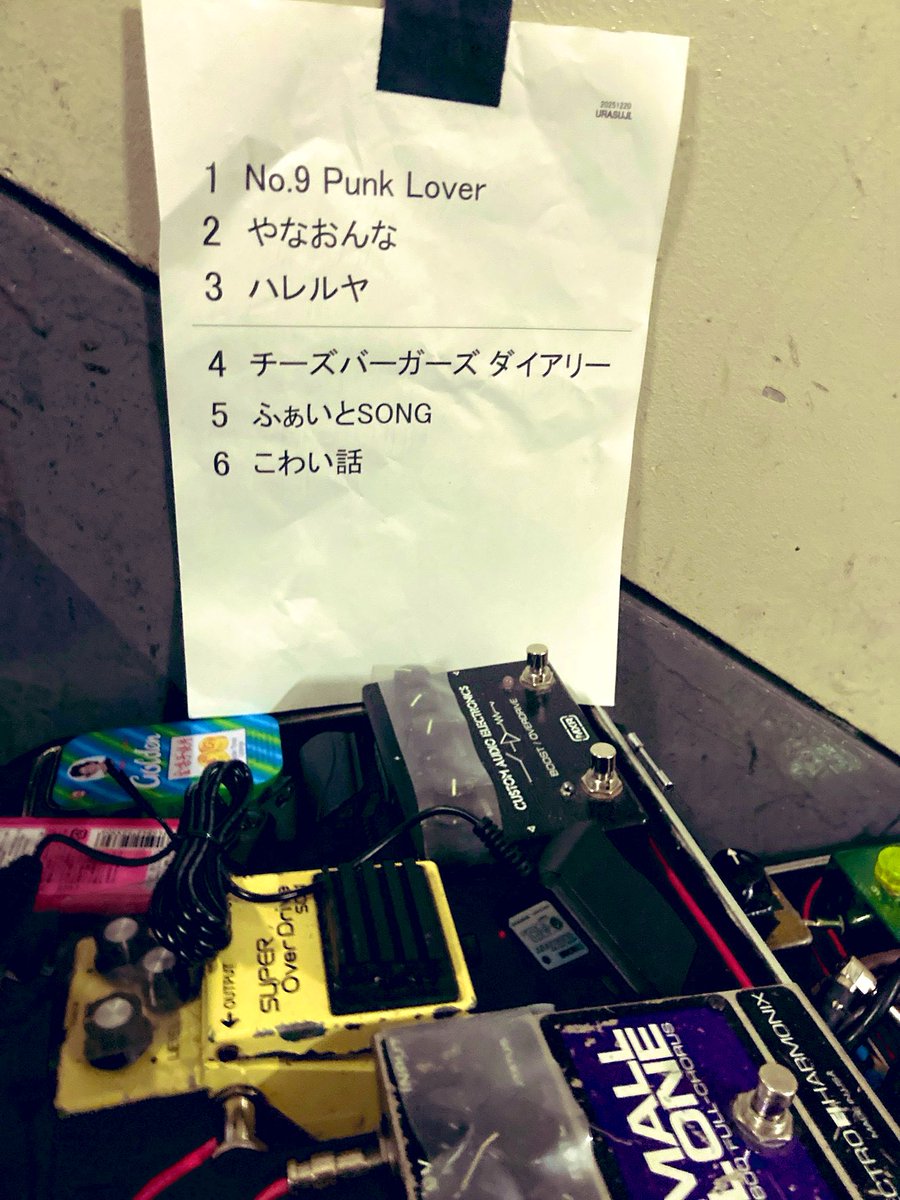 20251220
URASUJI.
1 No.9 Punk Lover
2 やなおんな
3 ハレルヤ
4 チーズバーガーズ ダイアリー
5 ふぁいとSONG
6 こわい話
CUSTOM AUDIO ELECTRONICS
BOOST / OVERDRIVE
MXR
Golden
←OUTPUT
SUPER
Over Drive
MALL
ONE
FULL-CHORUS
CTRO HARMONIX